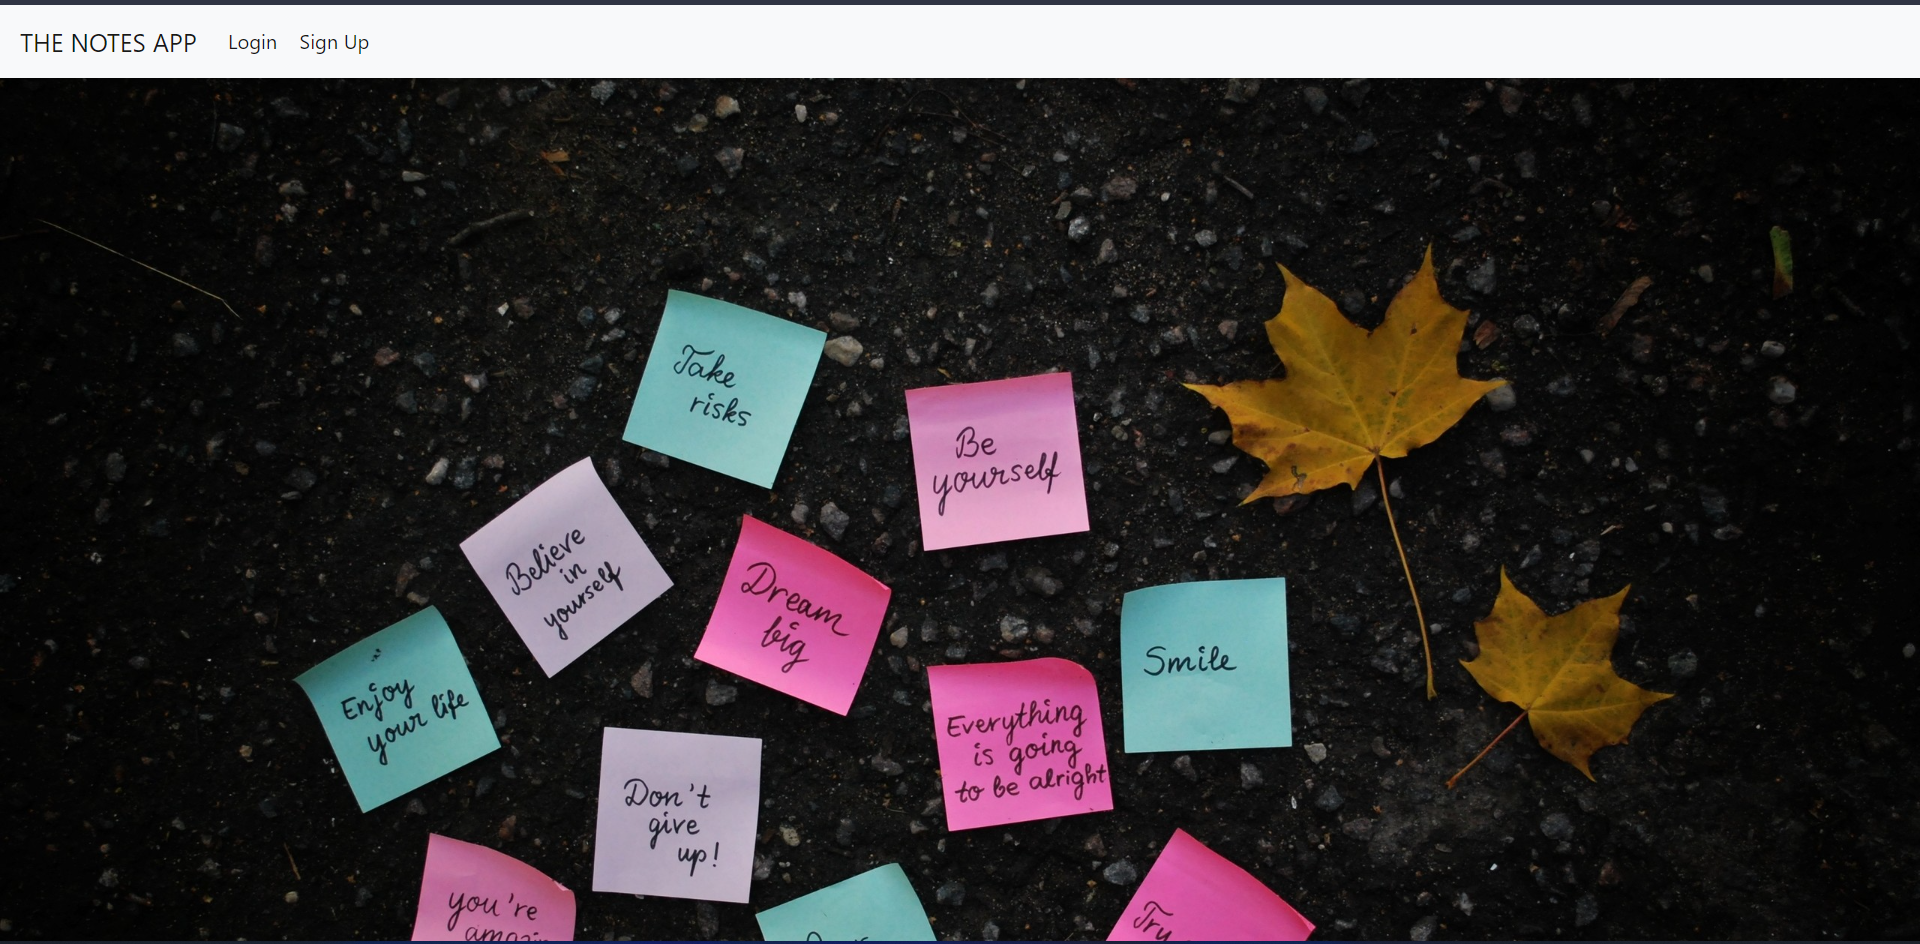 THE NOTES APP Login Sign Up
Take
risks
Be
yourself
Believe
in
yourself
Dream
big
Enjoy
your life
Smile
Everything
is going
to be alright
Don't
give
up!
you're
Try